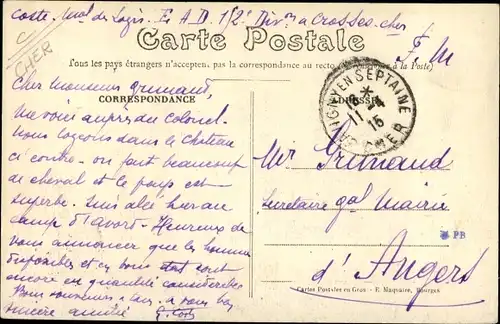 Coste, Mal des Logis. E A D. 1/2e Divon a Crosses. Cher
CHER
Carte Postale
F. M
Tous les pays étrangers n'acceptent pas la correspondance au recto (à la Poste)
CORRESPONDANCE
ADRESSE
SAVIGNY EN SEPTAINE
8 *
11 - 4
15
CHER
Cher Monsieur Grimaud,
Me voici auprès du Colonel.
Nous logeons dans le Chateau
ci contre. on fait beaucoup
de cheval et le pays est
superbe. Suis allé hier au
camp d'avord. Heureux de
vous annoncer que les hommes
disponibles et en bons sont
encore en quantité considérable
Bons souvenirs à tous. a vous bien
sincère amitié
Mr Grimaud
Secrétaire gal Mairie
d'Angers
PB
Cartes Postales en Gros - E. Maquaire, Bourges